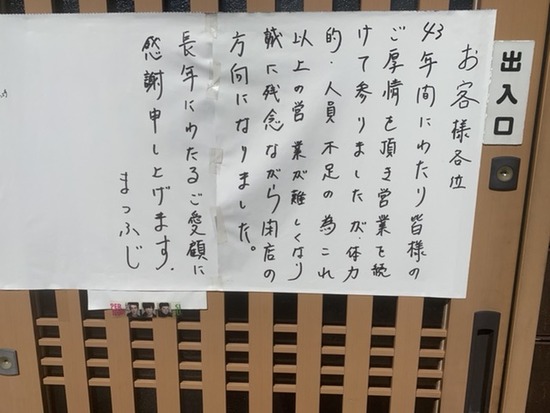 お客様各位
43年間にわたり皆様の
ご厚情を頂き営業を続
けて参りましたが体力
的・人員不足の為これ
以上の営業が難しくなり
誠に残念ながら閉店の
方向になりました。
長年にわたるご愛顧に
感謝申し上げます.
まつふじ
出入口